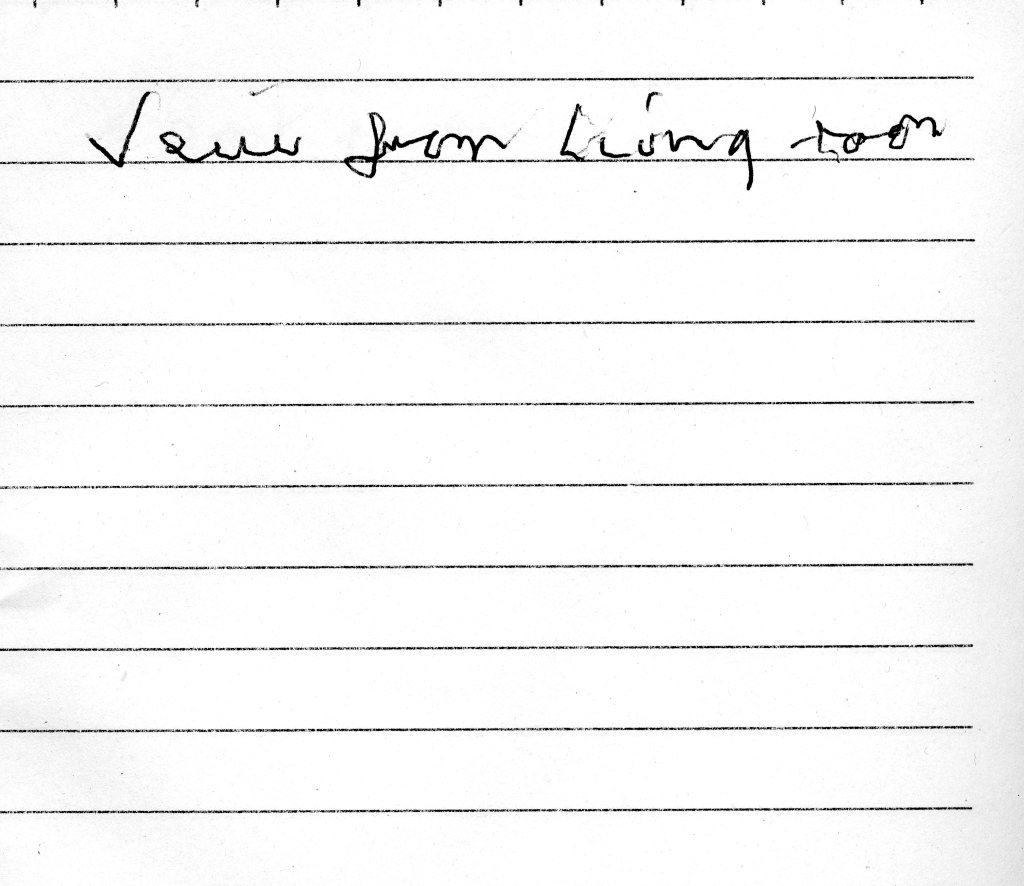 View from living room